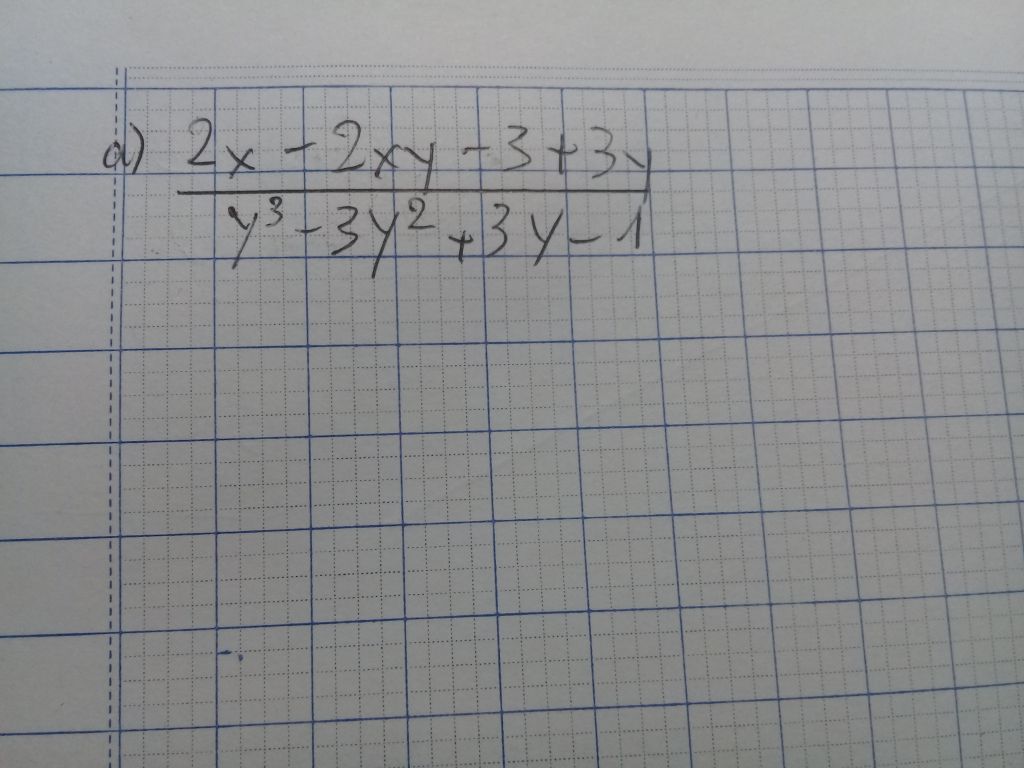 a) 2x - 2xy - 3 + 3y
y³ - 3y² + 3y - 1